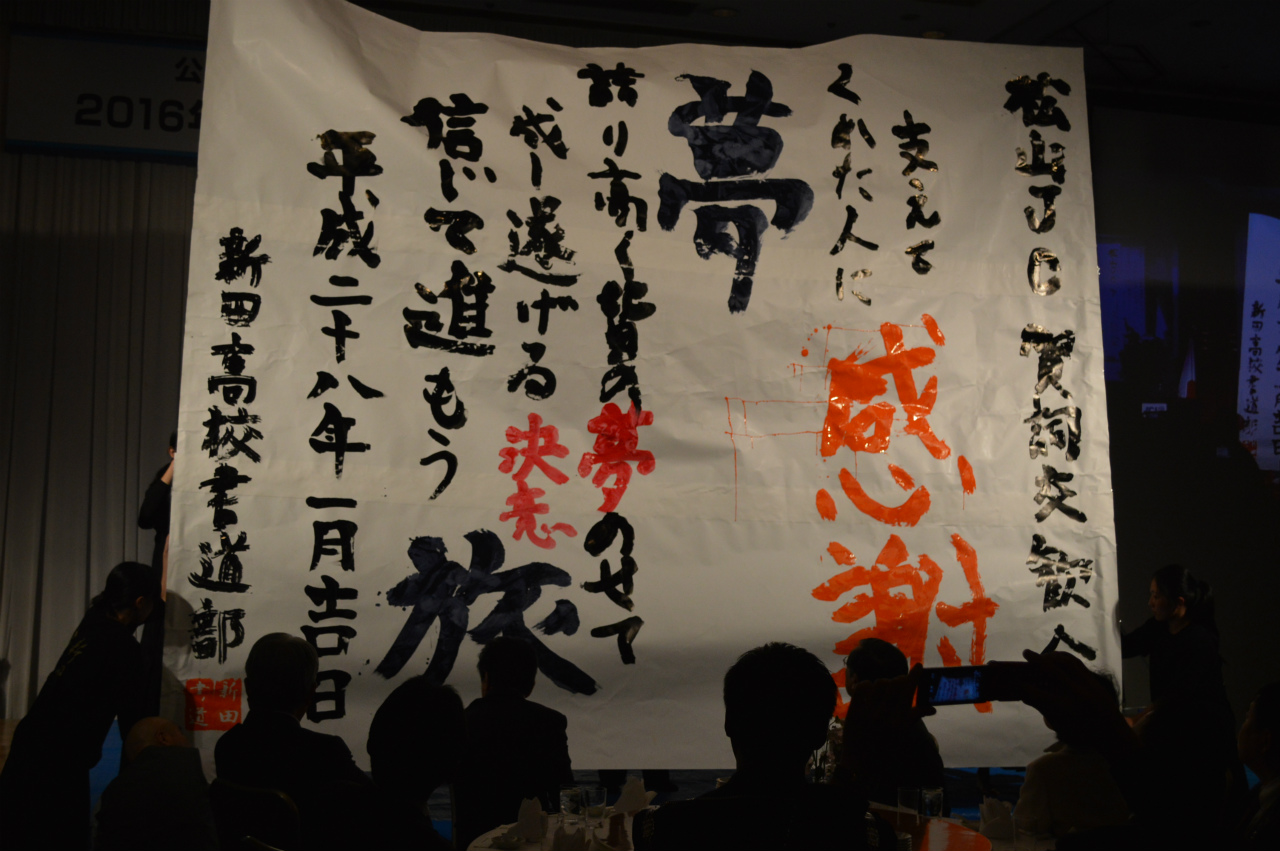 松山JC 賀詞交歓会
支えて
くれた人に
感謝
夢
誇り高く皆の夢のせて
成し遂げる決意
信じて進もう
旅
平成二十八年一月吉日
新田高校書道部
新田
書道
公
2016年
新田高校書道部